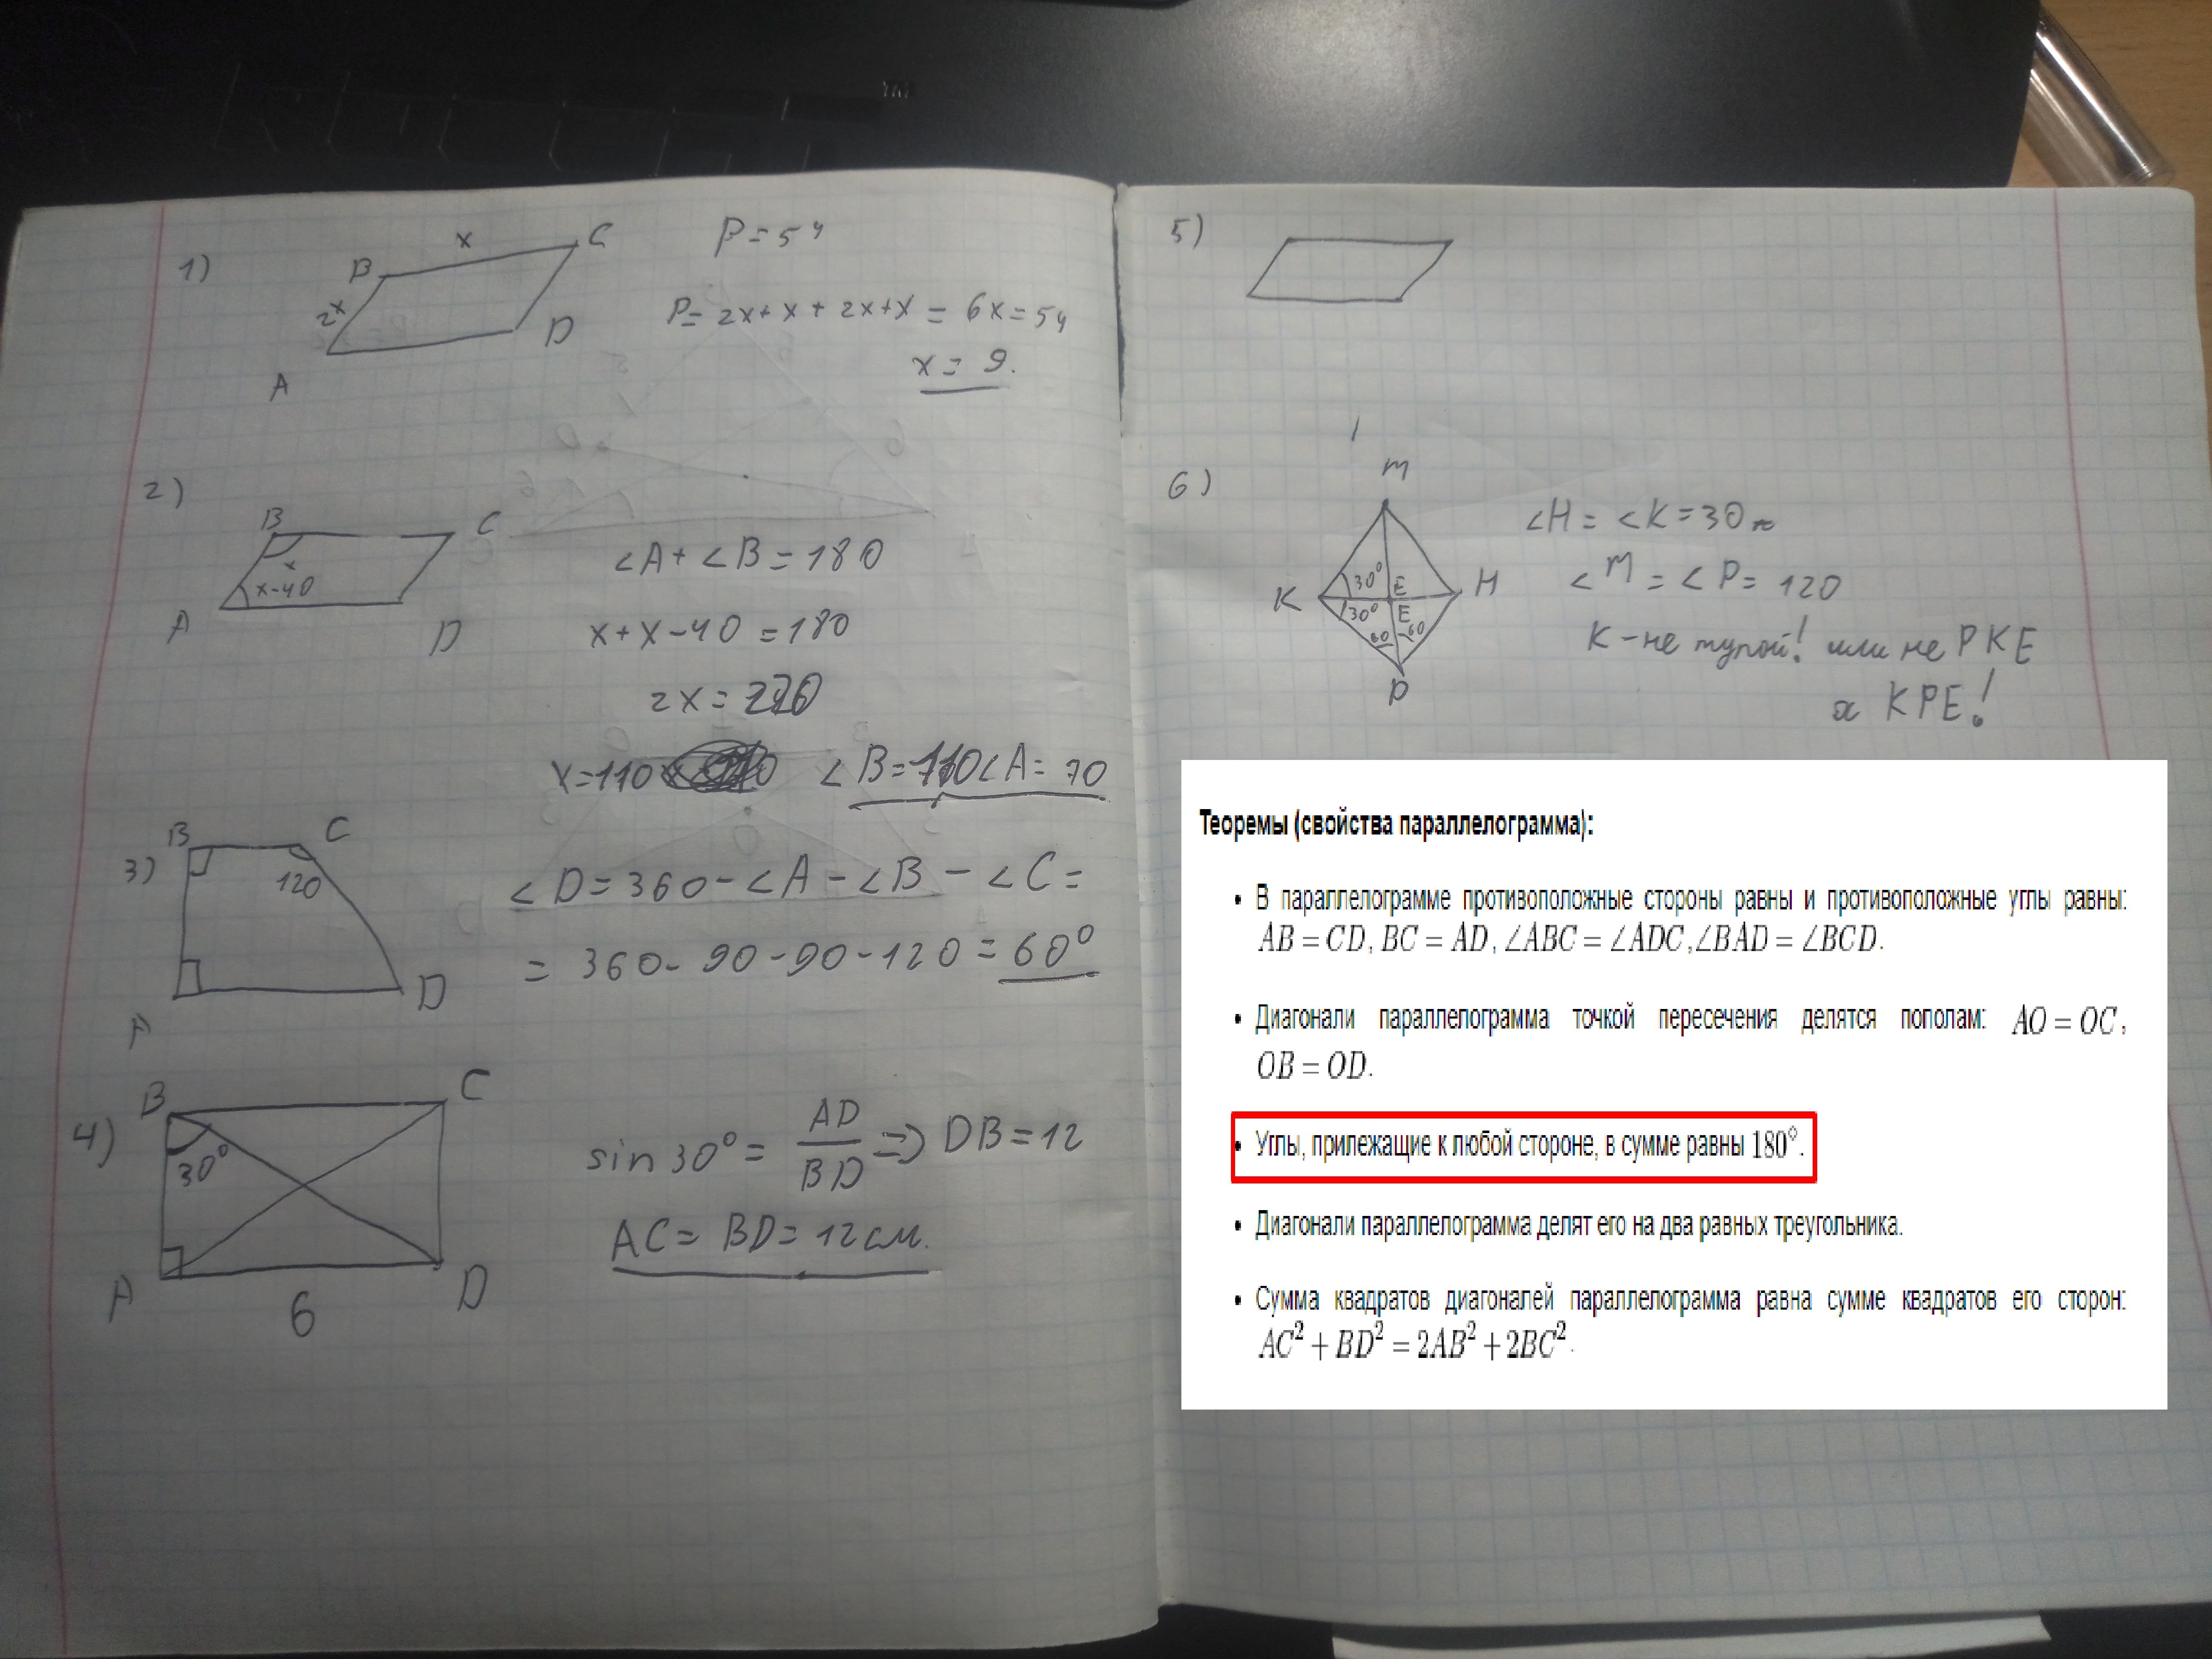 1)
x
B
C
2x
A
D
P=54
P= 2x+x+2x+x = 6x=54
x = 9.
2)
B
C
x
x-40
A
D
∠A+∠B=180
x+x-40=180
2x=220
x=110
∠B=110 ∠A=70
3)
B
C
120
A
D
∠D=360-∠A-∠B-∠C=
= 360-90-90-120=60°
4)
B
C
30°
A
6
D
sin30°= AD/BD => DB=12
AC= BD=12см.
5)
6)
M
K
30°
E
H
30°
E
60
60
P
∠H=∠K=30
∠M=∠P=120
K-не тупой! или не PKE
а KPE!
Теоремы (свойства параллелограмма):
• В параллелограмме противоположные стороны равны и противоположные углы равны:
AB = CD, BC = AD, ∠ABC = ∠ADC, ∠BAD = ∠BCD.
• Диагонали параллелограмма точкой пересечения делятся пополам: AO = OC,
OB = OD.
• Углы, прилежащие к любой стороне, в сумме равны 180°.
• Диагонали параллелограмма делят его на два равных треугольника.
• Сумма квадратов диагоналей параллелограмма равна сумме квадратов его сторон:
AC² + BD² = 2AB² + 2BC².